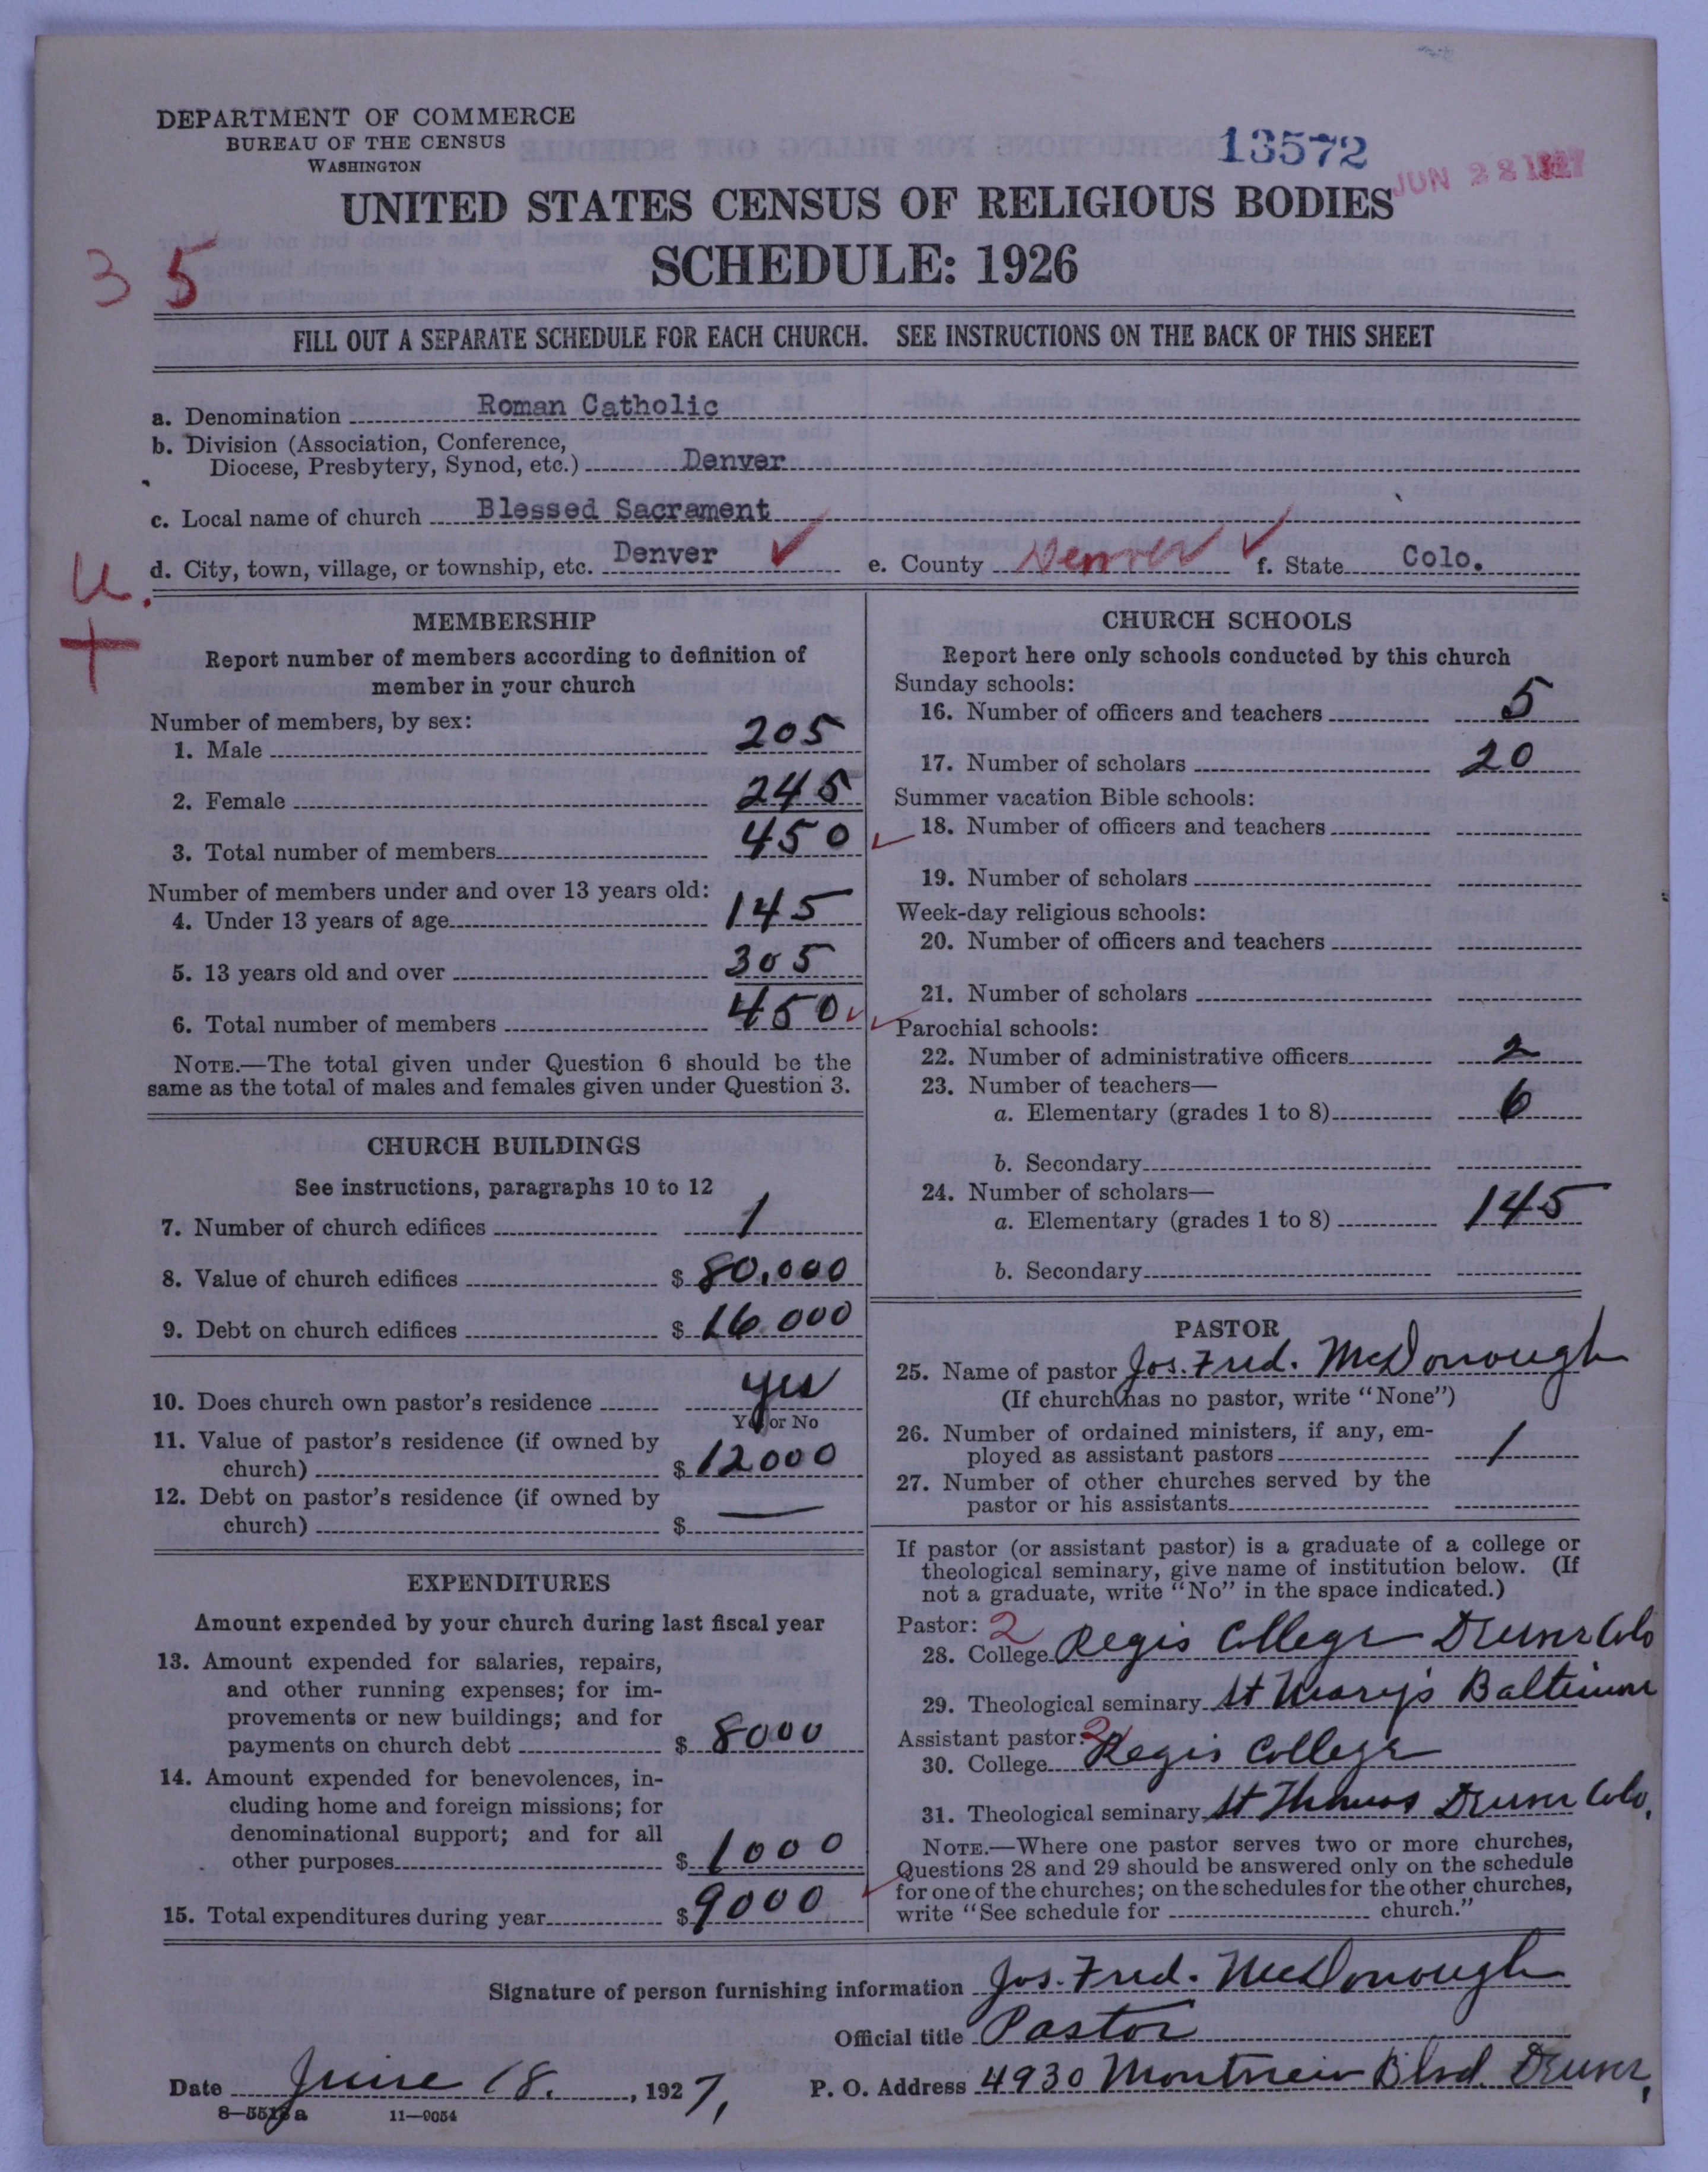 DEPARTMENT OF COMMERCE
BUREAU OF THE CENSUS
WASHINGTON
13572
JUN 28 1927
UNITED STATES CENSUS OF RELIGIOUS BODIES
SCHEDULE: 1926
3 5
FILL OUT A SEPARATE SCHEDULE FOR EACH CHURCH. SEE INSTRUCTIONS ON THE BACK OF THIS SHEET
a. Denomination Roman Catholic
b. Division (Association, Conference,
Diocese, Presbytery, Synod, etc.) Denver
c. Local name of church Blessed Sacrament
d. City, town, village, or township, etc. Denver ✓ e. County Denver ✓ f. State Colo.
U.
+
MEMBERSHIP
Report number of members according to definition of
member in your church
Number of members, by sex:
1. Male 205
2. Female 245
3. Total number of members 450
Number of members under and over 13 years old:
4. Under 13 years of age 145
5. 13 years old and over 305
6. Total number of members 450
NOTE.—The total given under Question 6 should be the
same as the total of males and females given under Question 3.
CHURCH BUILDINGS
See instructions, paragraphs 10 to 12
7. Number of church edifices 1
8. Value of church edifices $ 80,000
9. Debt on church edifices $ 16.000
10. Does church own pastor's residence yes
Yes or No
11. Value of pastor's residence (if owned by
church) $ 12000
12. Debt on pastor's residence (if owned by
church) $ —
EXPENDITURES
Amount expended by your church during last fiscal year
13. Amount expended for salaries, repairs,
and other running expenses; for im-
provements or new buildings; and for
payments on church debt $ 8000
14. Amount expended for benevolences, in-
cluding home and foreign missions; for
denominational support; and for all
other purposes $ 1000
15. Total expenditures during year $ 9000
CHURCH SCHOOLS
Report here only schools conducted by this church
Sunday schools:
16. Number of officers and teachers 5
17. Number of scholars 20
Summer vacation Bible schools:
18. Number of officers and teachers
19. Number of scholars
Week-day religious schools:
20. Number of officers and teachers
21. Number of scholars
Parochial schools:
22. Number of administrative officers 2
23. Number of teachers—
a. Elementary (grades 1 to 8) 6
b. Secondary
24. Number of scholars—
a. Elementary (grades 1 to 8) 145
b. Secondary
PASTOR
25. Name of pastor Jos. Fred. McDonough
(If church has no pastor, write "None")
26. Number of ordained ministers, if any, em-
ployed as assistant pastors 1
27. Number of other churches served by the
pastor or his assistants
If pastor (or assistant pastor) is a graduate of a college or
theological seminary, give name of institution below. (If
not a graduate, write "No" in the space indicated.)
Pastor: 2
28. College Regis College Denver Colo
29. Theological seminary St Mary's Baltimore
Assistant pastor: 2
30. College Regis College
31. Theological seminary St Thomas Denver Colo.
NOTE.—Where one pastor serves two or more churches,
Questions 28 and 29 should be answered only on the schedule
for one of the churches; on the schedules for the other churches,
write "See schedule for church."
Signature of person furnishing information Jos. Fred. McDonough
Official title Pastor
Date June 18, 1927, P. O. Address 4930 Montview Blvd Denver,
8—5518 a 11—9054